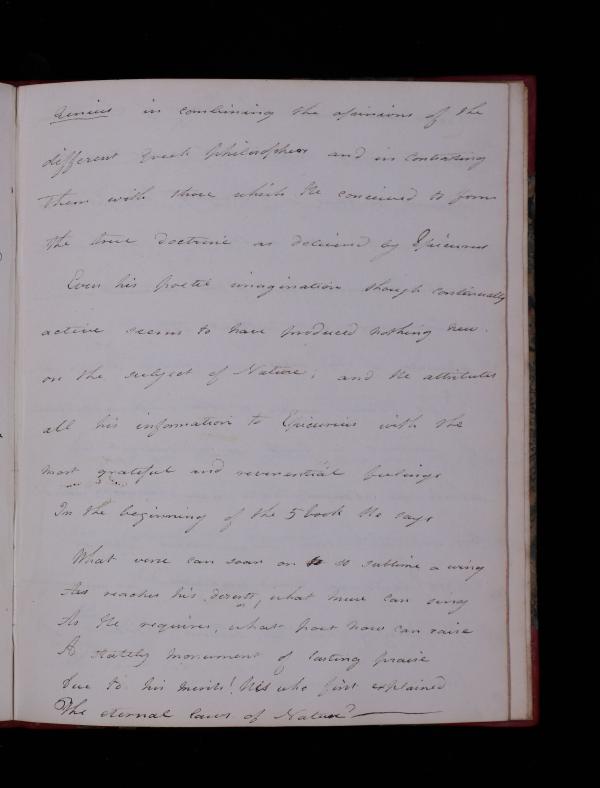 Genius in combining the opinions of the
different Greek philosophers and in contrasting
them with those which He conceived to form
the true doctrine as delivered by Epicurus
Even his poetic imagination though continually
active seems to have produced nothing new
on the subject of Nature; and He attributes
all his information to Epicurus with the
most grateful and reverential feelings
In the beginning of the 5 book He says
What verse can soar on so sublime a wing
As reaches his deserts, what muse can sing
As He requires, what poet now can raise
A stately monument of lasting praise
Due to his merits! His who first explained
The eternal laws of Nature?